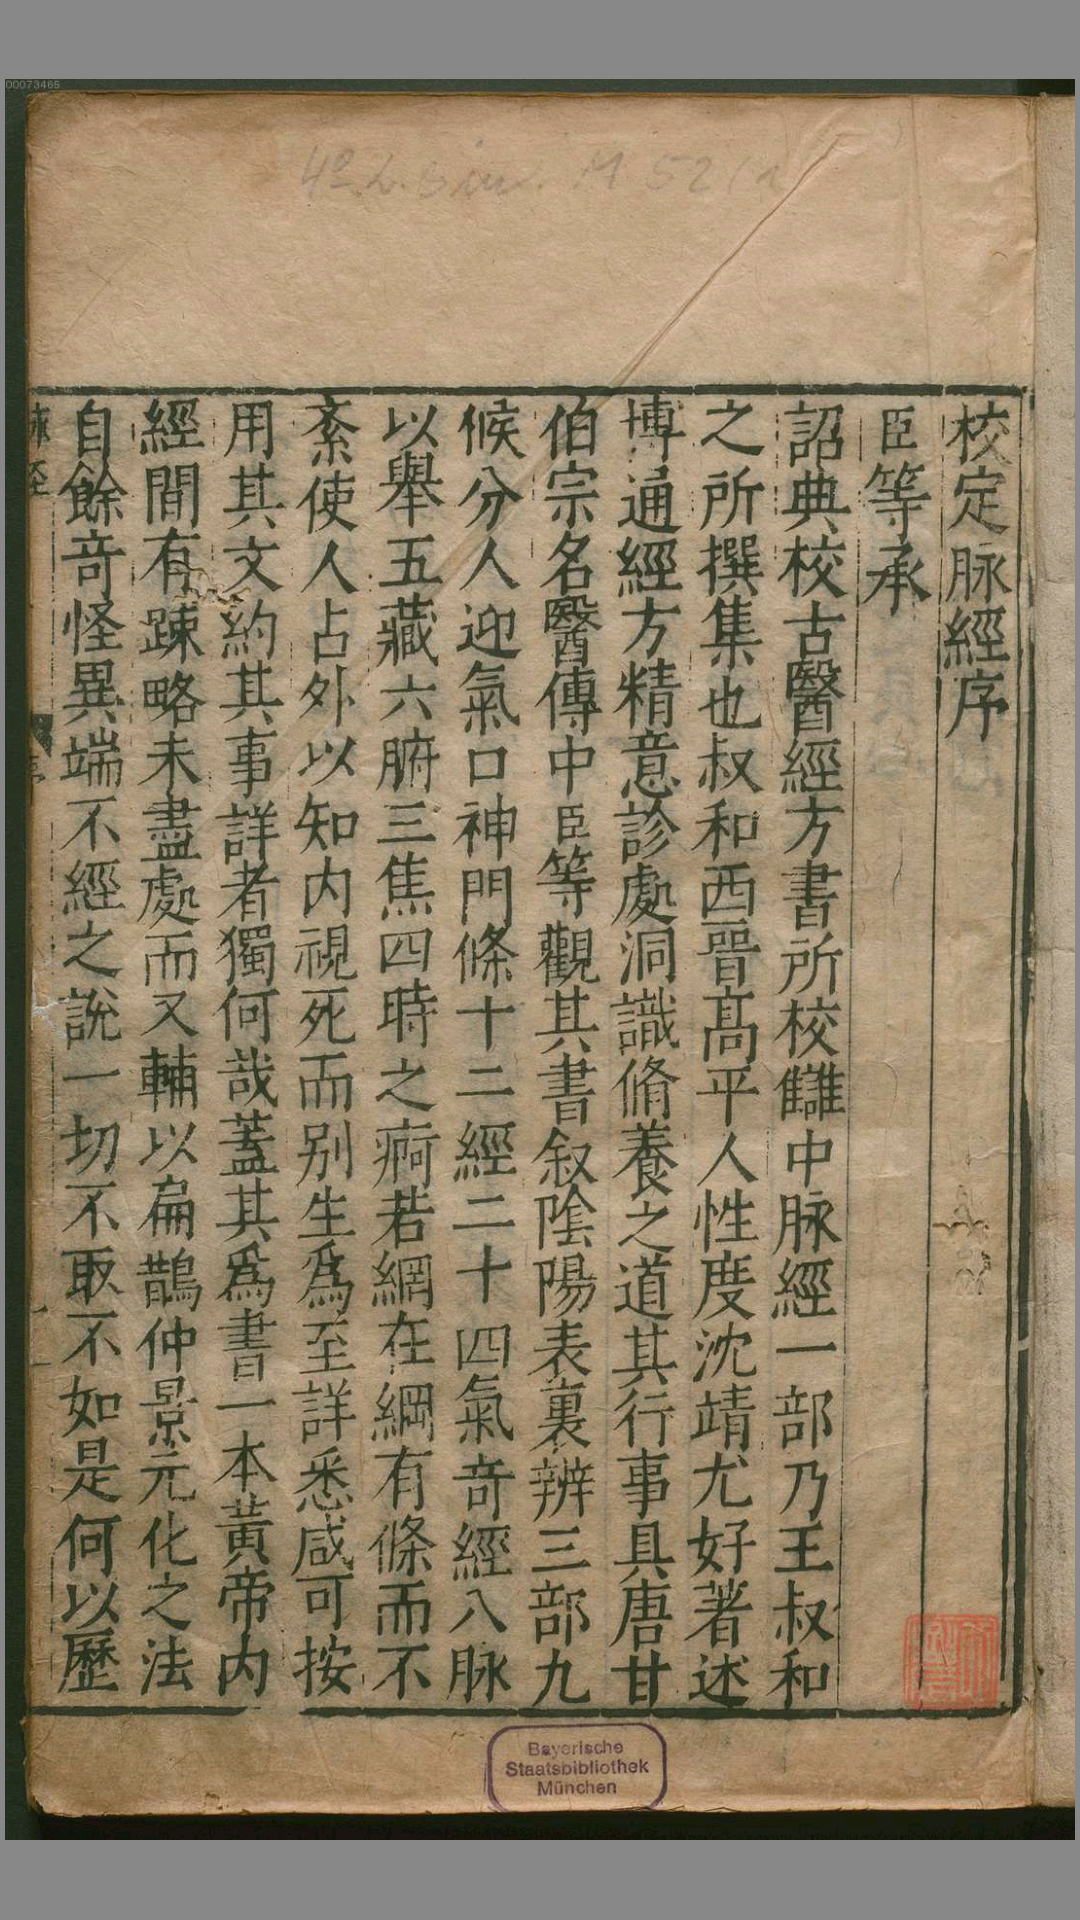 00073465
4° L. sin. M 52 (1
校定脉經序
臣等承
詔典校古醫經方書所校讎中脉經一部乃王叔和
之所撰集也叔和西晉髙平人性度沈靖尤好著述
博通經方精意診處洞識脩養之道其行事具唐甘
伯宗名醫傳中臣等觀其書叙陰陽表裏辨三部九
候分人迎氣口神門條十二經二十四氣奇經八脉
以舉五藏六腑三焦四時之痾若網在綱有條而不
紊使人占外以知内視死而别生爲至詳悉咸可按
用其文約其事詳者獨何哉蓋其爲書一本黄帝内
經間有踈略未盡處而又輔以扁鵲仲景元化之法
自餘竒怪異端不經之說一切不取不如是何以歷
Bayerische
Staatsbibliothek
München